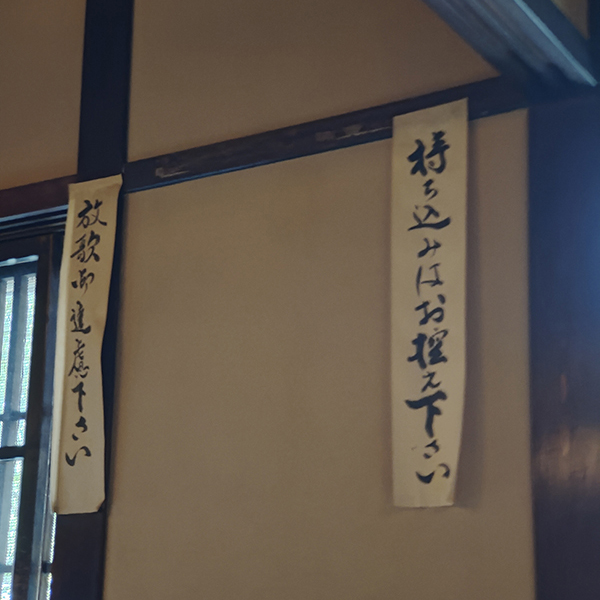 持ち込みはお控え下さい
放歌御遠慮下さい